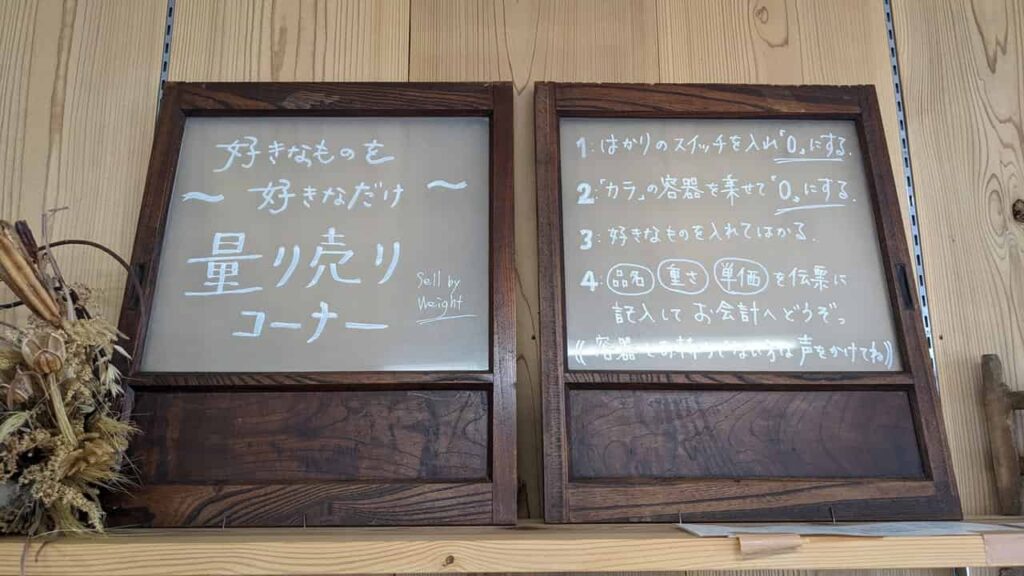 好きなものを
〜 好きなだけ 〜
量り売り
コーナー
Sell by
Weight
1:はかりのスイッチを入れ「0」にする.
2:「カラ」の容器を乗せて「0」にする.
3:好きなものを入れてはかる.
4:品名 重さ 単価 を伝票に
記入して お会計へどうぞっ
((容器をお持ちでない方は声をかけてね))